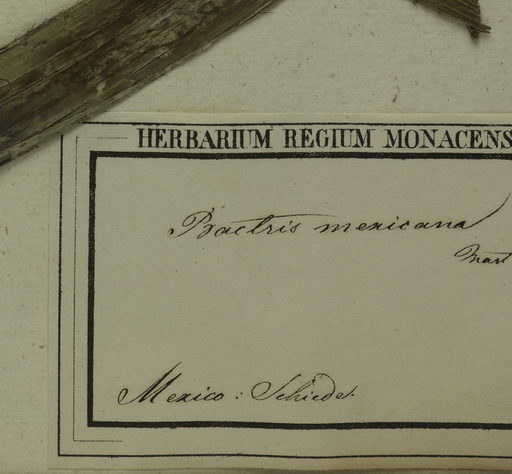 HERBARIUM REGIUM MONACENS
Bactris mexicana
Mart
Mexico: Schiede.